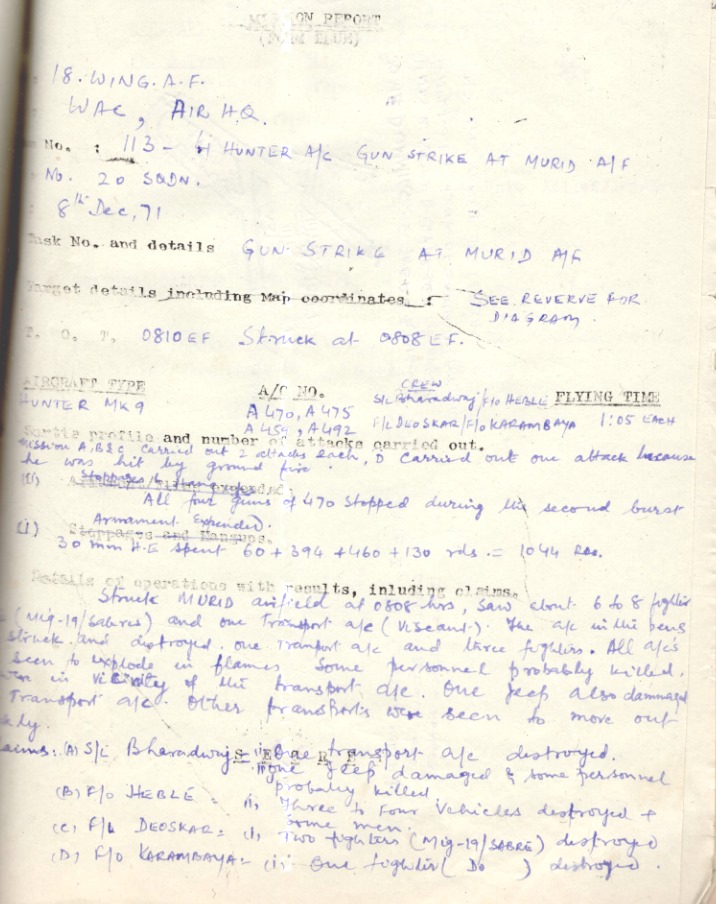 MISSION REPORT
(FORM BLUE)
18. WING. A.F.
WAC, AIR HQ.
No. : 113 - 4 HUNTER A/C GUN STRIKE AT MURID A/F
No. 20 SQDN.
8th Dec, 71
Task No. and details GUN STRIKE AT MURID A/F
Target details including Map coordinates : SEE REVERVE FOR
DIAGRAM.
T. O. T. 0810 EF Struck at 0808 EF.
CREW
AIRCRAFT TYPE A/C NO. S/L Bharadwaj/F/O HEBLE FLYING TIME
HUNTER MK9 A470, A475
A459, A492 F/L DEOSKAR/F/O KARAMBAYA 1:05 EACH
Sortie profile and number of attacks carried out.
Mission A, B & C carried out 2 attacks each, D carried out one attack because
he was hit by ground fire.
(i) Stoppages & Hangups
All four guns of 470 stopped during the second burst
Armament Expended.
(i) Stoppages and Hangups.
30 mm H.E spent 60 + 394 + 460 + 130 rds. = 1044 Rds.
Details of operations with results, inluding claims.
Struck MURID airfield at 0808 hrs, Saw about 6 to 8 fighter
(Mig-19/Sabres) and one Transport a/c (Viscount). The a/c in the pens
struck and destroyed one Tranport a/c and three fighters. All a/cs
seen to explode in flames Some personnel probably killed.
were in vicinity of the transport a/c. One Jeep also dammaged
Transport a/c. Other transports were seen to move out
claims: (A) S/L Bharadwaj - (i) One transport a/c destroyed.
(ii) One Jeep damaged & some personnel
probably killed
(B) F/O HEBLE = (i) Three to four vehicles destroyed +
some men.
(C) F/L DEOSKAR = (i) Two fighters (Mig-19/SABRE) destroyed
(D) F/O KARAMBAYA = (i) One fighter ( Do ) destroyed.